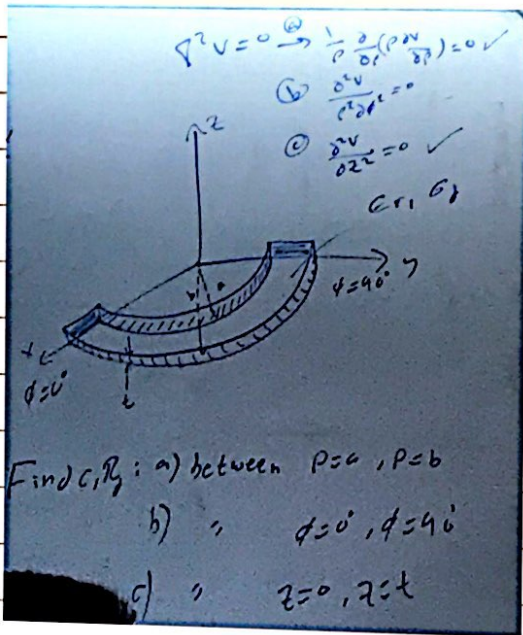 ∇²V=0 ⓐ→ 1/ρ ∂/∂ρ(ρ ∂V/∂ρ)=0 ✓
ⓑ ∂²V/ρ²∂φ²=0
ⓒ ∂²V/∂z²=0 ✓
z
εr, σ
b a
y
φ=90°
x
φ=0°
t
Find C, R : a) between ρ=a, ρ=b
b) " φ=0°, φ=90°
c) " z=0, z=t